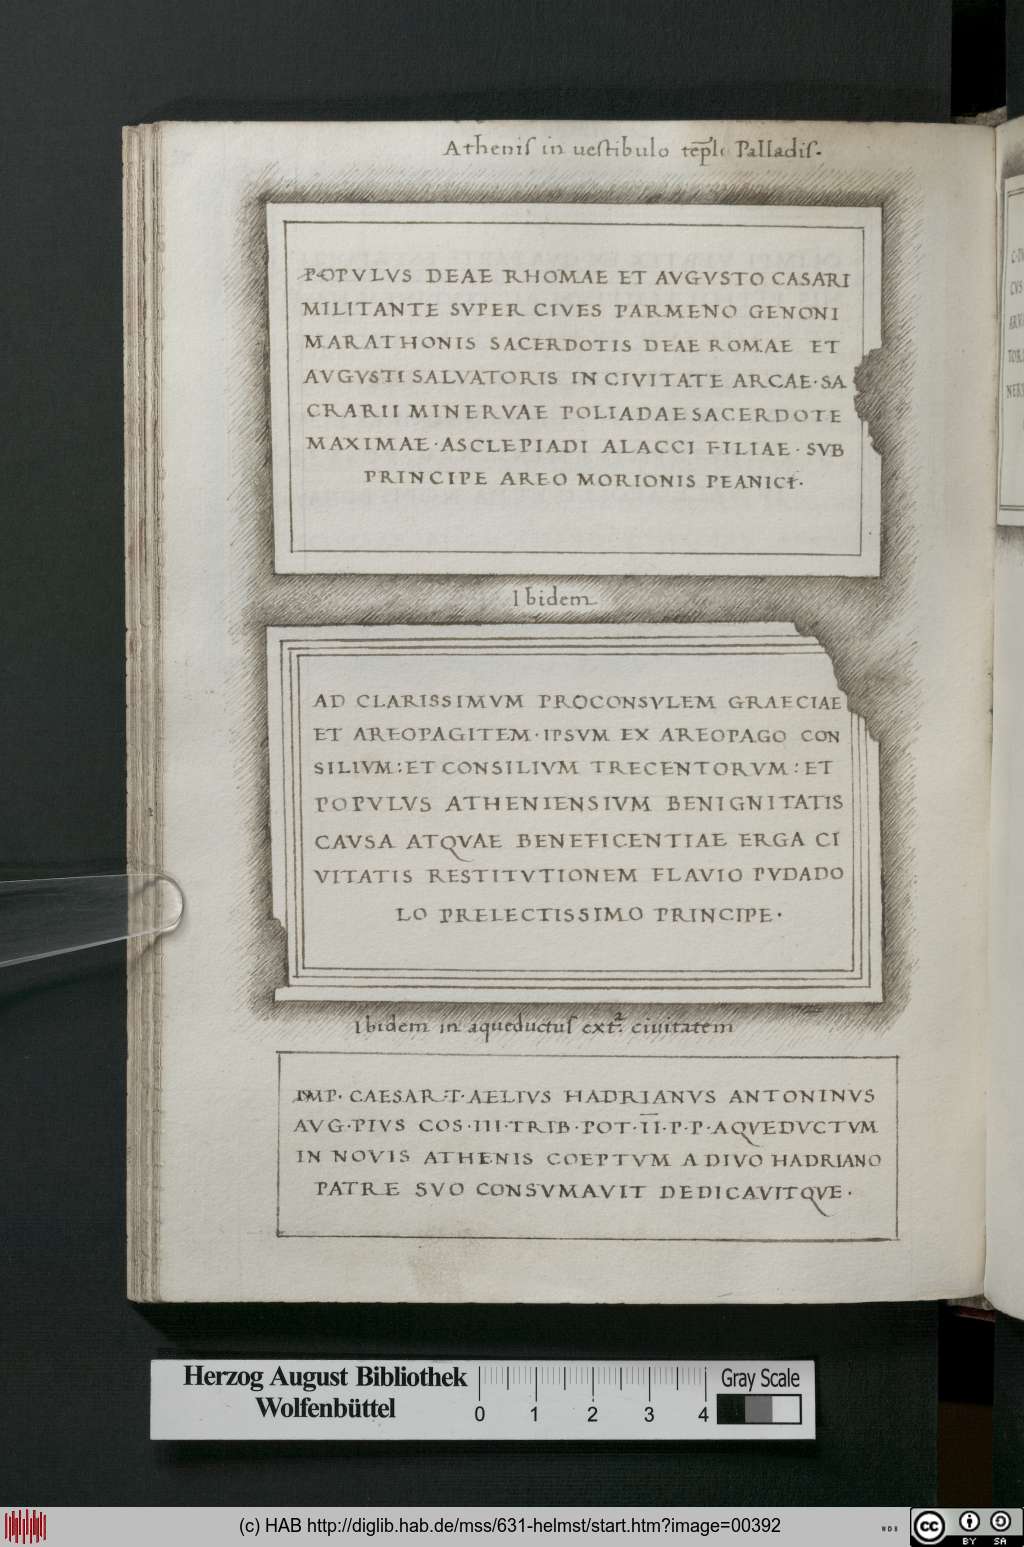 Athenis in uestibulo te̅pli Palladis.
POPVLVS DEAE RHOMAE ET AVGVSTO CASARI
MILITANTE SVPER CIVES PARMENO GENONI
MARATHONIS SACERDOTIS DEAE ROMAE ET
AVGVSTI SALVATORIS IN CIVITATE ARCAE·SA
CRARII MINERVAE POLIADAE SACERDOTE
MAXIMAE·ASCLEPIADI ALACCI FILIAE·SVB
PRINCIPE AREO MORIONIS PEANICI·
Ibidem
AD CLARISSIMVM PROCONSVLEM GRAECIAE
ET AREOPAGITEM·IPSVM EX AREOPAGO CON
SILIVM:ET CONSILIVM TRECENTORVM:ET
POPVLVS ATHENIENSIVM BENIGNITATIS
CAVSA ATQVAE BENEFICENTIAE ERGA CI
VITATIS RESTITVTIONEM FLAVIO PVDADO
LO PRELECTISSIMO PRINCIPE·
Ibidem in aqueductus extᵃ: ciuitatem
IMP·CAESAR·T·AELIVS HADRIANVS ANTONINVS
AVG·PIVS COS·III·TRIB·POT·I̅I̅·P·P·AQVEDVCTVM
IN NOVIS ATHENIS COEPTVM A DIVO HADRIANO
PATRE SVO CONSVMAVIT DEDICAVITQVE·
Herzog August Bibliothek
Wolfenbüttel
0 1 2 3 4
Gray Scale
(c) HAB http://diglib.hab.de/mss/631-helmst/start.htm?image=00392
WDB
cc BY SA